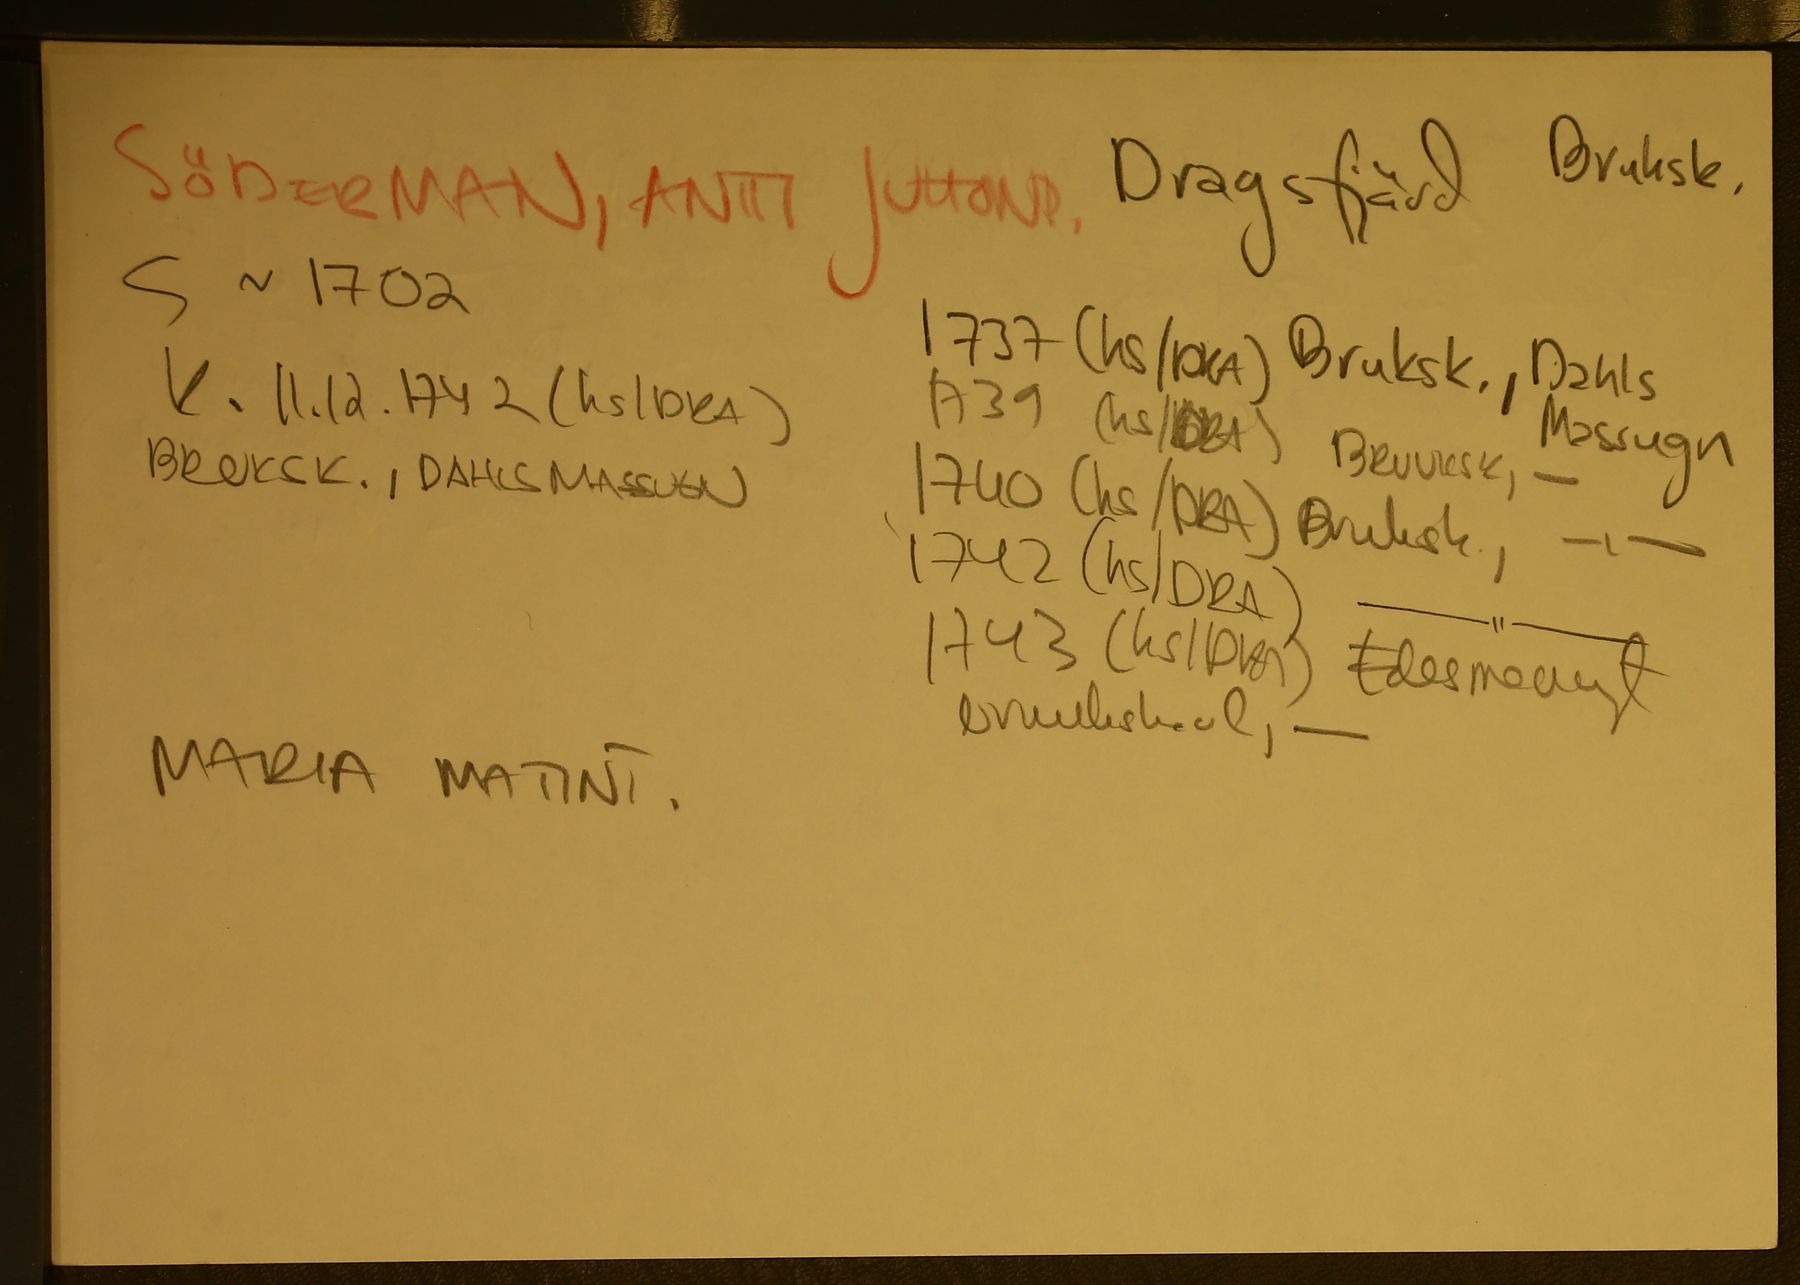 SÖDERMAN, ANTTI JUHONP. Dragsfjärd Bruksk.
S ~ 1702
K. 11.12.1742 (hs/DRA)
BRUKSK., DAHLS MASSUGN
1737 (hs/DRA) Bruksk., Dahls Massugn
1739 (hs/DRA) BRUUKSK, —
1740 (hs/DRA) Bruksk., —ı—
1742 (hs/DRA) —"—
1743 (hs/DRA) Edesmennyt
MARIA MATINT.